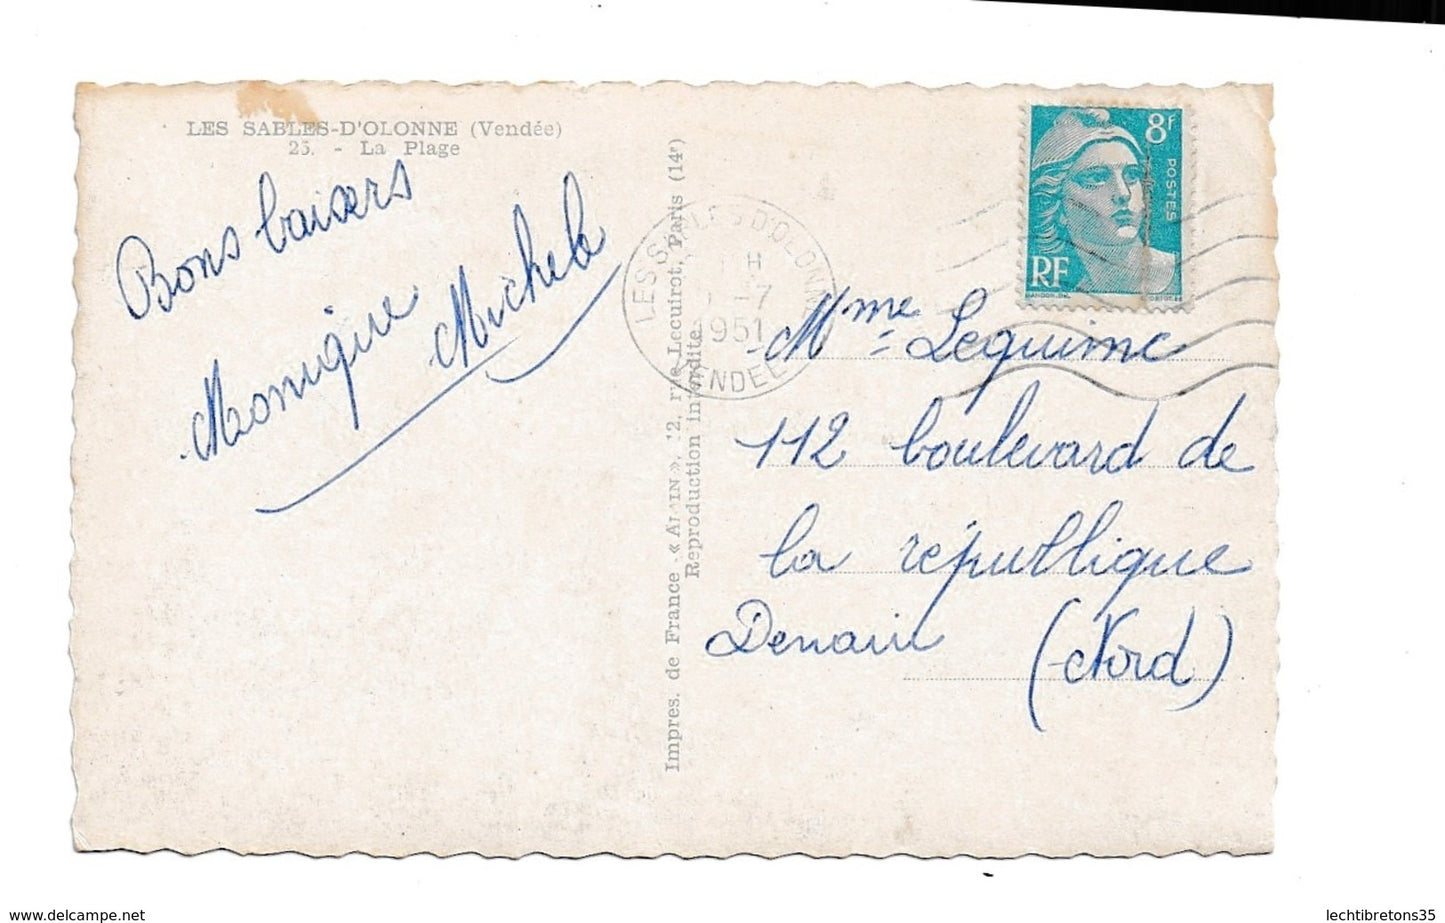 LES SABLES-D'OLONNE (Vendée)
25. - La Plage
Bons baisers
Monique Michele
Impres. de France « ALAIN ». 12, rue Lecuirot, Paris (14e)
Reproduction interdite
LES SABLES D'OLONNE
H
7
1951
VENDEE
8f
POSTES
RF
GANDON
Mme Lequime
112 boulevard de
la république
Denain (Nord)
www.delcampe.net
lechtibretons35